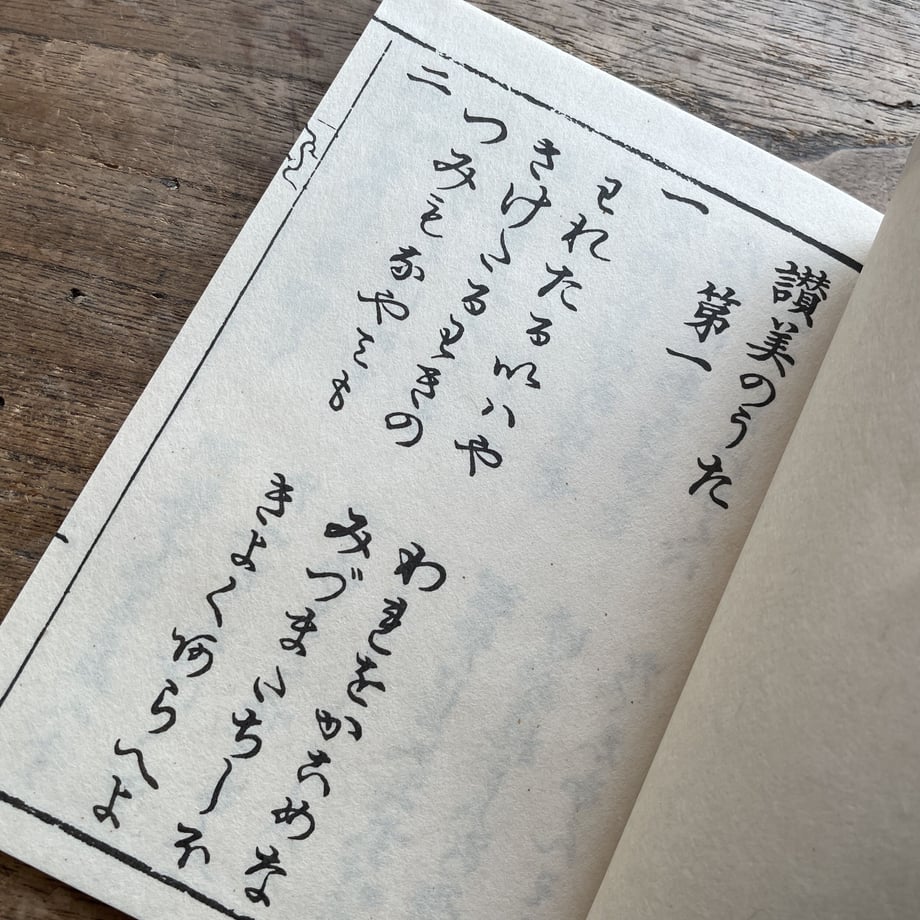 讃美のうた
第一
一
われたるいはや われをかこめな
さけたるわきの みづまたちしほ
つみもなやみも きよくあらへよ
二